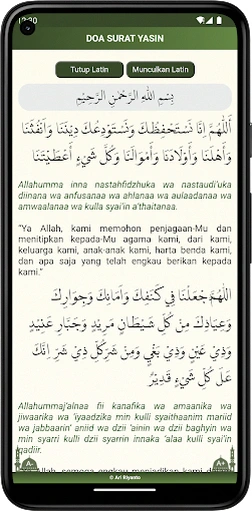 12:30
DOA SURAT YASIN
Tutup Latin
Munculkan Latin
بِسْمِ اللهِ الرَّحْمٰنِ الرَّحِيْمِ
اَللّٰهُمَّ اِنَّا نَسْتَحْفِظُكَ وَنَسْتَوْدِعُكَ دِيْنَنَا وَاَنْفُسَنَا
وَاَهْلَنَا وَاَوْلَادَنَا وَاَمْوَالَنَا وَكُلَّ شَيْءٍ اَعْطَيْتَنَا
Allahumma inna nastahfidzhuka wa nastaudi'uka
diinana wa anfusanaa wa ahlanaa wa aulaadanaa wa
amwaalanaa wa kulla syai'in a'thaitanaa.
"Ya Allah, kami memohon penjagaan-Mu dan
menitipkan kepada-Mu agama kami, dari kami,
keluarga kami, anak-anak kami, harta benda kami,
dan apa saja yang telah engkau berikan kepada
kami."
اَللّٰهُمَّ اجْعَلْنَا فِيْ كَنَفِكَ وَاَمَانِكَ وَجِوَارِكَ
وَعِيَاذِكَ مِنْ كُلِّ شَيْطَانٍ مَرِيْدٍ وَجَبَّارٍ عَنِيْدٍ
وَذِيْ عَيْنٍ وَذِيْ بَغْيٍ وَمِنْ شَرِّ كُلِّ ذِيْ شَرٍّ اِنَّكَ
عَلٰى كُلِّ شَيْءٍ قَدِيْرٌ
Allahummaj'alnaa fii kanafika wa amaanika wa
jiwaarika wa 'iyaadzika min kulli syaithaanim mariid
wa jabbaarin' aniid wa dzii 'ainin wa dzii baghyin wa
min syarri kulli dzii syarrin innaka 'alaa kulli syai'in
qadiir.
semoga engkau
A-
A+
© Ari Riyanto